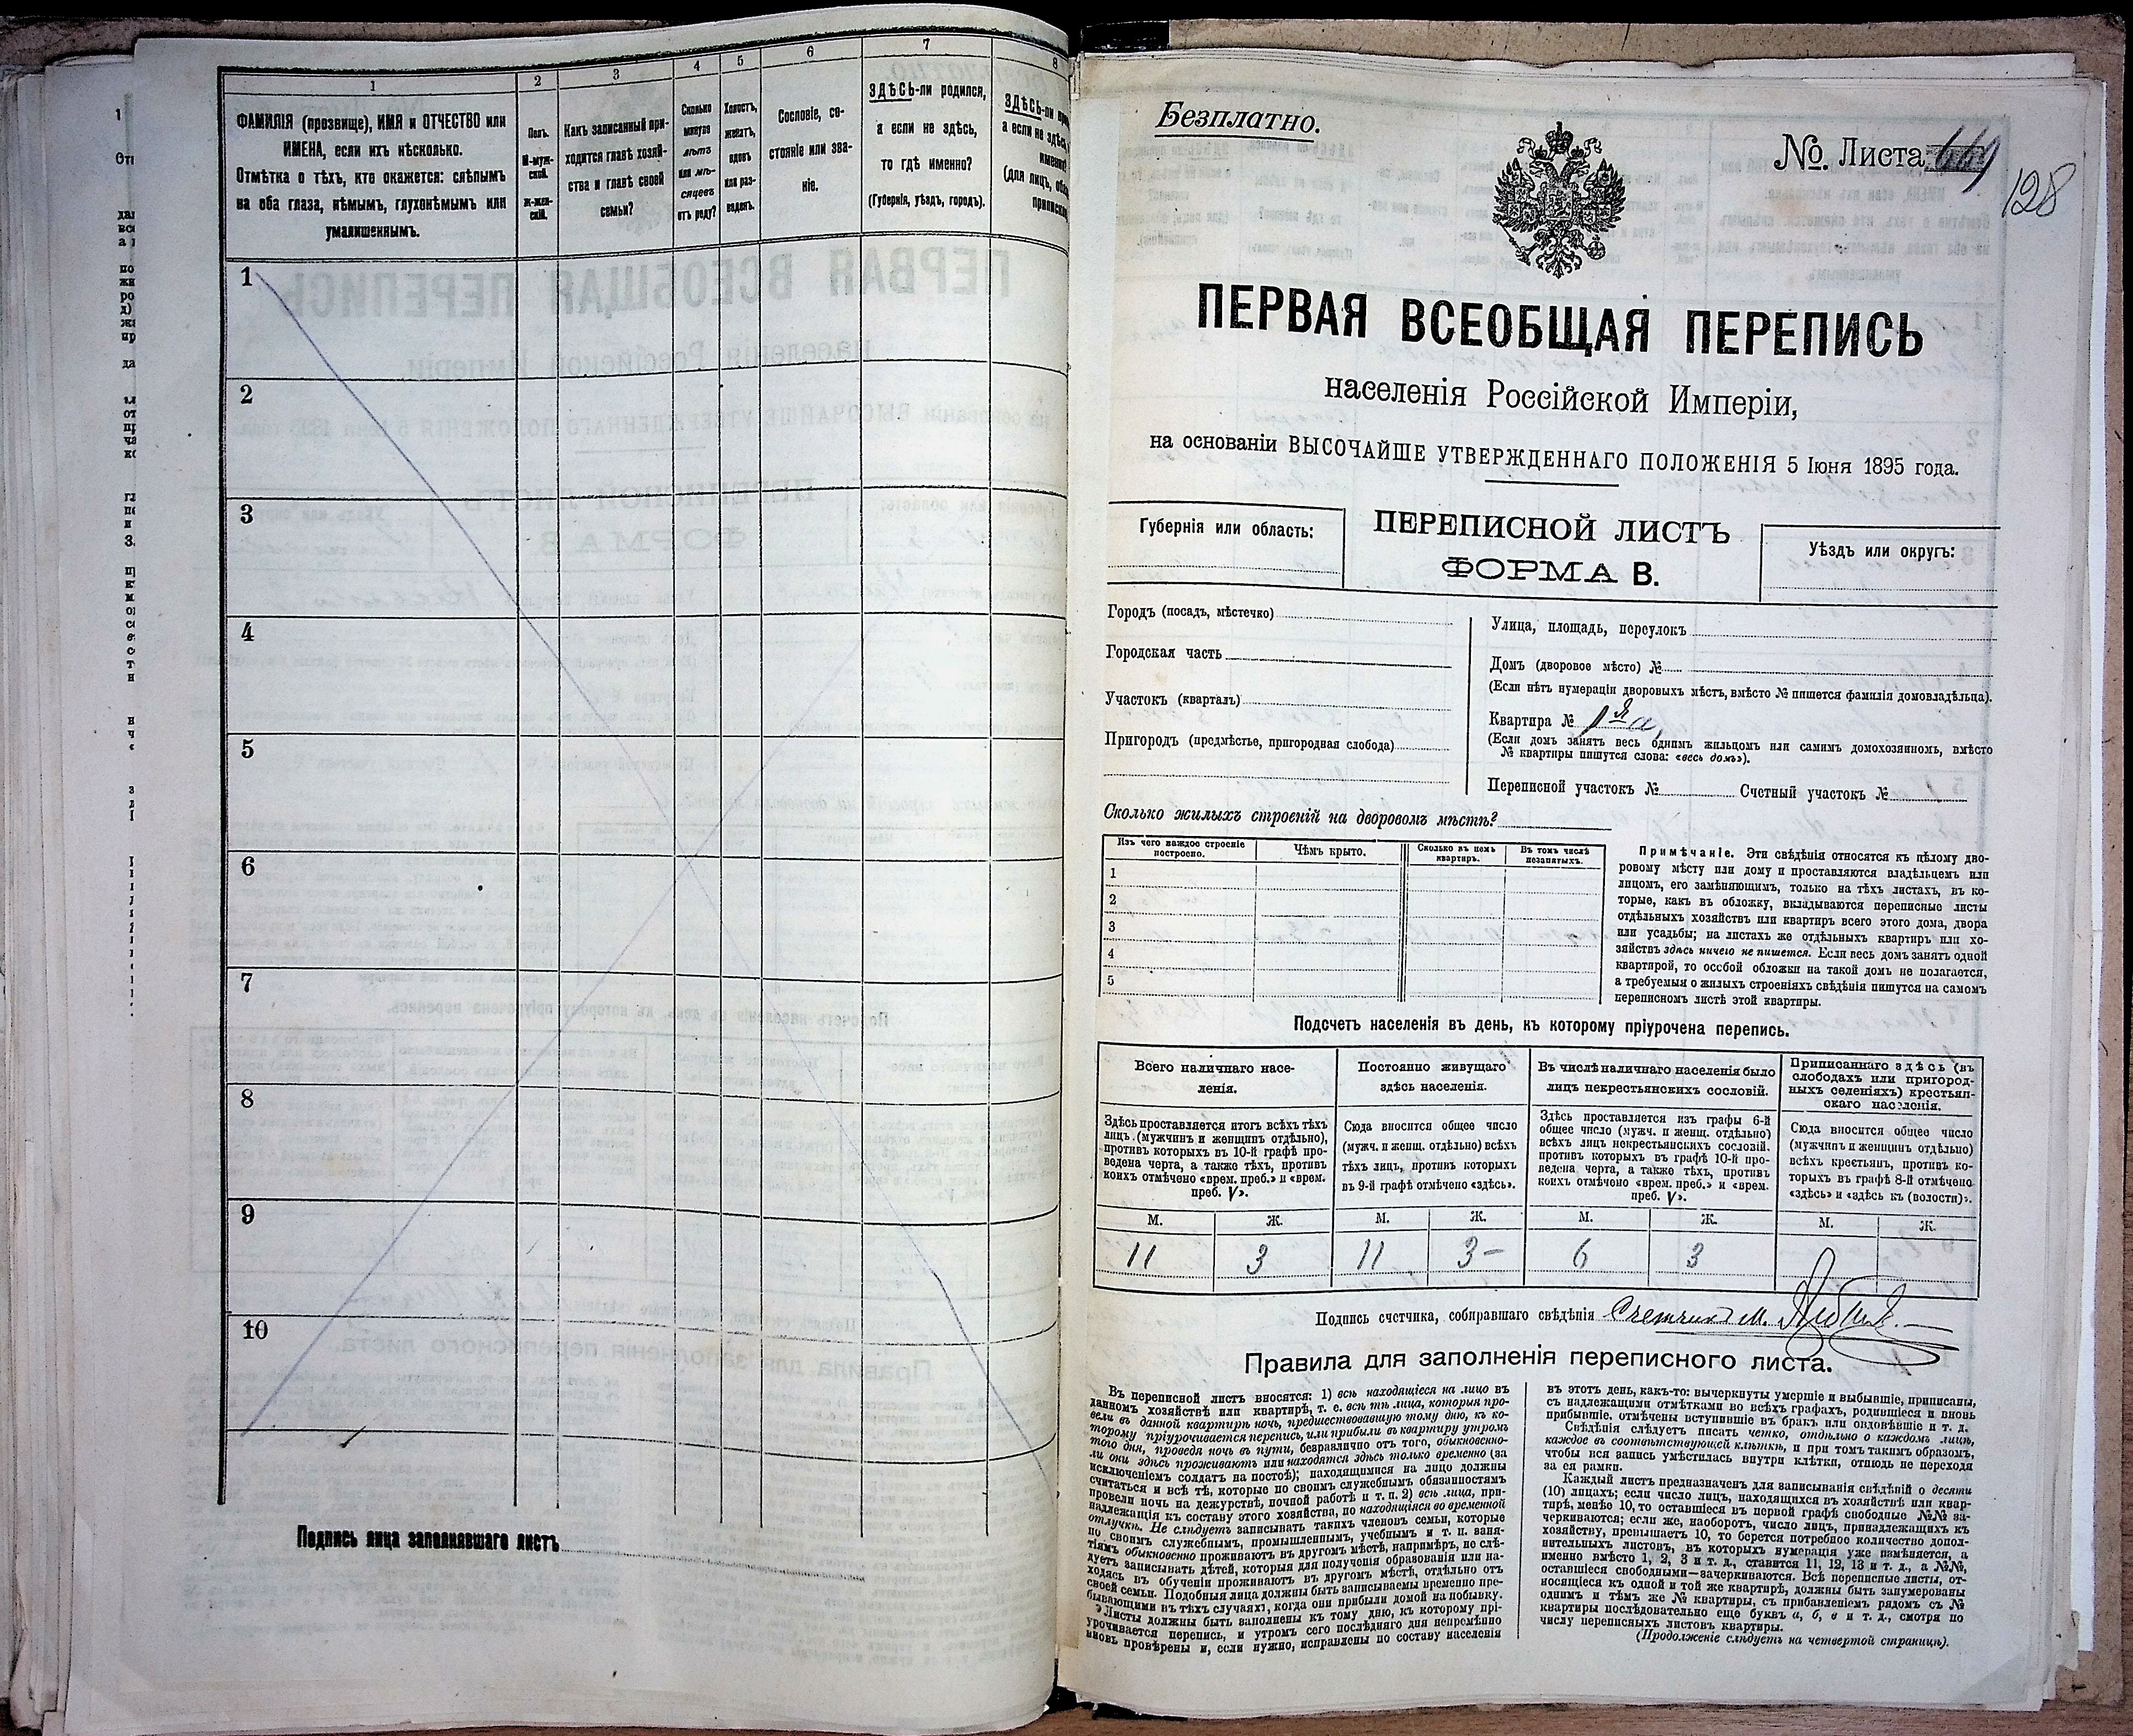 1
2
3
4
5
6
7
8
ФАМИЛІЯ (прозвище), ИМЯ и ОТЧЕСТВО или
ИМЕНА, если ихъ нѣсколько.
Отмѣтка о тѣхъ, кто окажется: слѣпымъ
на оба глаза, нѣмымъ, глухонѣмымъ или
умалишеннымъ.
Полъ.
М-муж-
ской.
Ж-жен-
скій.
Какъ записанный при-
ходится главѣ хозяй-
ства и главѣ своей
семьи?
Сколько
минуло
лѣтъ
или мѣ-
сяцевъ
отъ роду?
Холостъ,
женатъ,
вдовъ
или раз-
веденъ.
Сословіе, со-
стояніе или зва-
ніе.
ЗДѢСЬ-ли родился,
а если не здѣсь,
то гдѣ именно?
(Губернія, уѣздъ, городъ).
ЗДѢСЬ-ли
а если не здѣсь,
1
2
3
4
5
6
7
8
9
10
Подпись лица заполнявшаго листъ
Безплатно.
№. Листа
128
ПЕРВАЯ ВСЕОБЩАЯ ПЕРЕПИСЬ
населенія Россійской Имперіи,
на основаніи ВЫСОЧАЙШЕ УТВЕРЖДЕННАГО ПОЛОЖЕНІЯ 5 Іюня 1895 года.
Губернія или область:
ПЕРЕПИСНОЙ ЛИСТЪ
ФОРМА В.
Уѣздъ или округъ:
Городъ (посадъ, мѣстечко)
Городская часть
Участокъ (кварталъ)
Пригородъ (предмѣстье, пригородная слобода)
Улица, площадь, переулокъ
Домъ (дворовое мѣсто) №
(Если нѣтъ нумераціи дворовыхъ мѣстъ, вмѣсто № пишется фамилія домовладѣльца).
Квартира № 1я а,
(Если домъ занятъ весь однимъ жильцомъ или самимъ домохозяиномъ, вмѣсто
№ квартиры пишутся слова: «весь домъ»).
Переписной участокъ № Счетный участокъ №
Сколько жилыхъ строеній на дворовомъ мѣстѣ?
Изъ чего каждое строеніе
построено.
Чѣмъ крыто.
Сколько въ немъ
квартиръ.
Въ томъ числѣ
незанятыхъ.
1
2
3
4
5
Примѣчаніе. Эти свѣдѣнія относятся къ цѣлому дво-
ровому мѣсту или дому и проставляются владѣльцемъ или
лицомъ, его замѣняющимъ, только на тѣхъ листахъ, въ ко-
торые, какъ въ обложку, вкладываются переписные листы
отдѣльныхъ хозяйствъ или квартиръ всего этого дома, двора
или усадьбы; на листахъ же отдѣльныхъ квартиръ или хо-
зяйствъ здѣсь ничего не пишется. Если весь домъ занятъ одной
квартирой, то особой обложки на такой домъ не полагается,
а требуемыя о жилыхъ строеніяхъ свѣдѣнія пишутся на самомъ
переписномъ листѣ этой квартиры.
Подсчетъ населенія въ день, къ которому пріурочена перепись.
Всего наличнаго насе-
ленія.
Здѣсь проставляется итогъ всѣхъ тѣхъ
лицъ, (мужчинъ и женщинъ отдѣльно),
противъ которыхъ въ 10-й графѣ про-
ведена черта, а также тѣхъ, противъ
коихъ отмѣчено «врем. преб.» и «врем.
преб. V».
Постоянно живущаго
здѣсь населенія.
Сюда вносится общее число
(мужч. и женщ. отдѣльно) всѣхъ
тѣхъ лицъ, противъ которыхъ
въ 9-й графѣ отмѣчено «здѣсь».
Въ числѣ наличнаго населенія было
лицъ некрестьянскихъ сословій.
Здѣсь проставляется изъ графы 6-й
общее число (мужч. и женщ. отдѣльно)
всѣхъ лицъ некрестьянскихъ сословій.
противъ которыхъ въ графѣ 10-й про-
ведена черта, а также тѣхъ, противъ
коихъ отмѣчено «врем. преб.» и «врем.
преб. V».
Приписаннаго здѣсь (въ
слободахъ или пригород-
ныхъ селеніяхъ) крестьян-
скаго населенія.
Сюда вносится общее число
(мужчинъ и женщинъ отдѣльно)
всѣхъ крестьянъ, противъ ко-
торыхъ въ графѣ 8-й отмѣчено
«здѣсь» и «здѣсь къ (волости)».
М. Ж. М. Ж. М. Ж. М. Ж.
11 3 11 3— 6 3
Подпись счетчика, собиравшаго свѣдѣнія Счетчикъ М.
Правила для заполненія переписного листа.
Въ переписной листъ вносятся: 1) всѣ находящіеся на лицо въ
данномъ хозяйствѣ или квартирѣ, т. е. всѣ тѣ лица, которыя про-
вели въ данной квартирѣ ночь, предшествовавшую тому дню, къ ко-
торому пріурочивается перепись, или прибыли въ квартиру утромъ
того дня, проведя ночь въ пути, безразлично отъ того, обыкновенно-
ли они здѣсь проживаютъ или находятся здѣсь только временно (за
исключеніемъ солдатъ на постоѣ); находящимися на лицо должны
считаться и всѣ тѣ, которые по своимъ служебнымъ обязанностямъ
провели ночь на дежурствѣ, ночной работѣ и т. п. 2) всѣ лица, при-
надлежащія къ составу этого хозяйства, но находящіяся во временной
отлучкѣ. Не слѣдуетъ записывать такихъ членовъ семьи, которые
по своимъ служебнымъ, промышленнымъ, учебнымъ и т. п. заня-
тіямъ обыкновенно проживаютъ въ другомъ мѣстѣ, напримѣръ, не слѣ-
дуетъ записывать дѣтей, которыя для полученія образованія или на-
ходясь въ обученіи проживаютъ въ другомъ мѣстѣ, отдѣльно отъ
своей семьи. Подобныя лица должны быть записываемы временно пре-
бывающими въ тѣхъ случаяхъ, когда они прибыли домой на побывку.
Листы должны быть заполнены къ тому дню, къ которому прі-
урочивается перепись, и утромъ сего послѣдняго дня непремѣнно
вновь провѣрены и, если нужно, исправлены по составу населенія
въ этотъ день, какъ-то: вычеркнуты умершіе и выбывшіе, приписаны,
съ надлежащими отмѣтками во всѣхъ графахъ, родившіеся и вновь
прибывшіе, отмѣчены вступившіе въ бракъ или овдовѣвшіе и т. д.
Свѣдѣнія слѣдуетъ писать четко, отдѣльно о каждомъ лицѣ,
каждое въ соотвѣтствующей клѣткѣ, и при томъ такимъ образомъ,
чтобы вся запись умѣстилась внутри клѣтки, отнюдь не переходя
за ея рамки.
Каждый листъ предназначенъ для записыванія свѣдѣній о десяти
(10) лицахъ; если число лицъ, находящихся въ хозяйствѣ или квар-
тирѣ, менѣе 10, то оставшіеся въ первой графѣ свободные №№ за-
черкиваются; если же, наоборотъ, число лицъ, принадлежащихъ къ
хозяйству, превышаетъ 10, то берется потребное количество допол-
нительныхъ листовъ, въ которыхъ нумерація уже измѣняется, а
именно вмѣсто 1, 2, 3 и т. д., ставится 11, 12, 13 и т. д., а №№,
оставшіеся свободными—зачеркиваются. Всѣ переписные листы, от-
носящіеся къ одной и той же квартирѣ, должны быть занумерованы
однимъ и тѣмъ же № квартиры, съ прибавленіемъ рядомъ съ №
квартиры послѣдовательно еще буквъ а, б, в и т. д., смотря по
числу переписныхъ листовъ квартиры.
(Продолженіе слѣдуетъ на четвертой страницѣ).